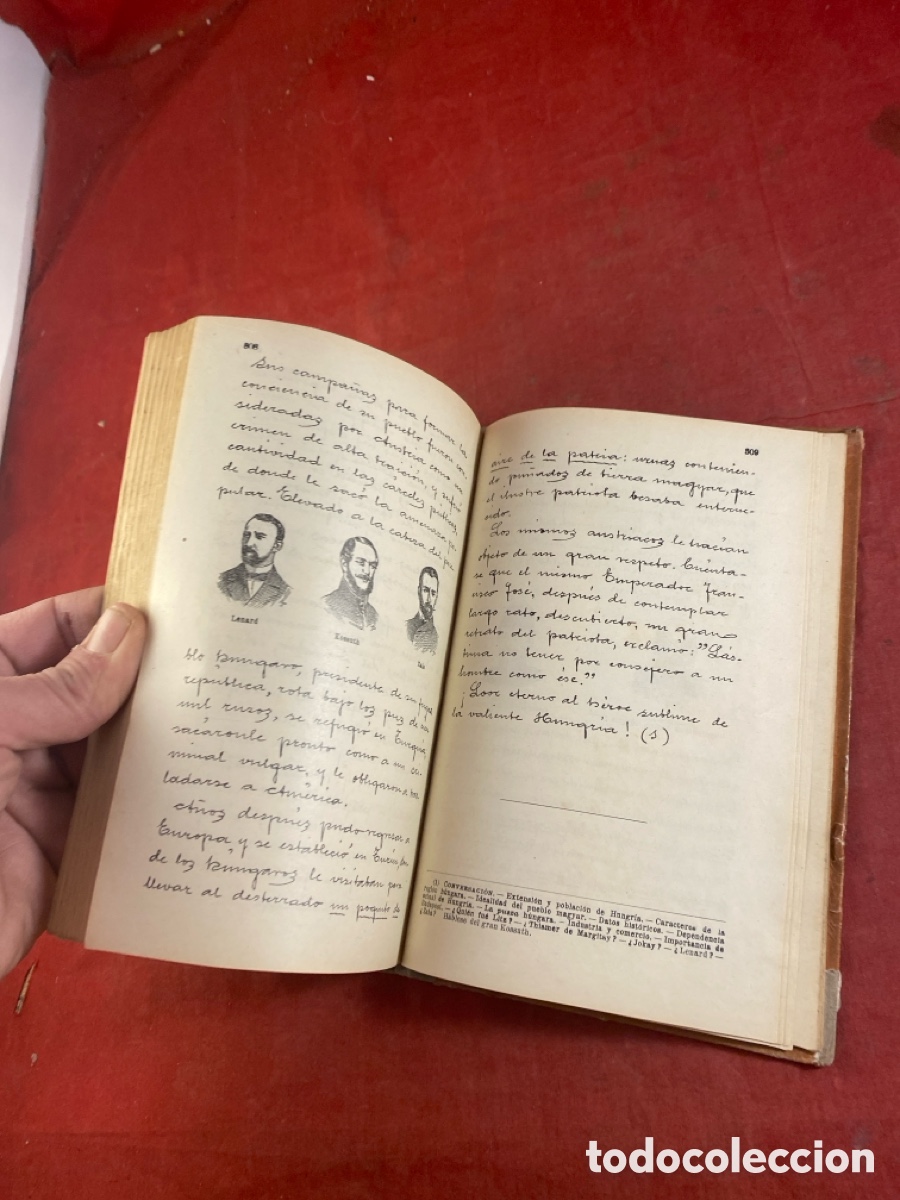 308
Sus campañas para formar la
conciencia de su pueblo fueron con-
sideradas por Austria como un
crimen de alta traición, y sufrió
cautividad en las cárceles públicas
de donde le sacó la amenaza po-
pular. Elevado a la cabeza del pue-
Lenard
Kossuth
blo húngaro, presidente de su fugaz
república, rota bajo los pies de
mil rusos, se refugió en Turquía,
sacáronle pronto como a un cri-
minal vulgar, y le obligaron a tras-
ladarse a América.
Años después pudo regresar a
Europa, y se estableció en Turín,
de los húngaros le visitaban para
llevar al desterrado un poquito de
309
aire de la patria: urnas contenien-
do puñados de tierra magyar, que
el ilustre patriota besaba enterne-
cido.
Los mismos austriacos le hacían
objeto de un gran respeto. Cuénta-
se que el mismo Emperador Fran-
cisco José, después de contemplar
largo rato, descubierto, un gran
retrato del patriota, exclamó: "Lás-
tima no tener por consejero a un
hombre como ése."
¡Loor eterno al héroe sublime de
la valiente Hungría! (1)
(1) CONVERSACIÓN. — Extensión y población de Hungría. — Caracteres de la
región húngara. — Idealidad del pueblo magyar. — Datos históricos. — Dependencia
actual de Hungría. — La puszea húngara. — Industria y comercio. — Importancia de
¿Quién fué Litz? — ¿Thiamer de Margitay? — ¿Jokay? — ¿Lenard? —
Háblese del gran Kossuth.
todocoleccion